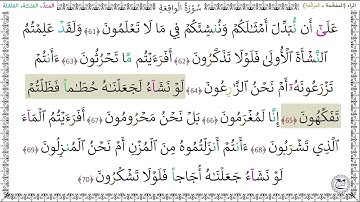 الراء (المفخمة - المرققة) سُورَةُ الوَاقِعَةِ المدّ، الغنّة، القلقلة
عَلَىٰٓ أَن نُّبَدِّلَ أَمْثَٰلَكُمْ وَنُنشِئَكُمْ فِي مَا لَا تَعْلَمُونَ ﴿61﴾ وَلَقَدْ عَلِمْتُمُ
النَّشْأَةَ الْأُولَىٰ فَلَوْلَا تَذَكَّرُونَ ﴿62﴾ أَفَرَءَيْتُم مَّا تَحْرُثُونَ ﴿63﴾ ءَأَنتُمْ
تَزْرَعُونَهُۥٓ أَمْ نَحْنُ الزَّٰرِعُونَ ﴿64﴾ لَوْ نَشَآءُ لَجَعَلْنَٰهُ حُطَٰمًا فَظَلْتُمْ
تَفَكَّهُونَ ﴿65﴾ إِنَّا لَمُغْرَمُونَ ﴿66﴾ بَلْ نَحْنُ مَحْرُومُونَ ﴿67﴾ أَفَرَءَيْتُمُ الْمَآءَ
الَّذِي تَشْرَبُونَ ﴿68﴾ ءَأَنتُمْ أَنزَلْتُمُوهُ مِنَ الْمُزْنِ أَمْ نَحْنُ الْمُنزِلُونَ ﴿69﴾
لَوْ نَشَآءُ جَعَلْنَٰهُ أُجَاجًا فَلَوْلَا تَشْكُرُونَ ﴿70﴾